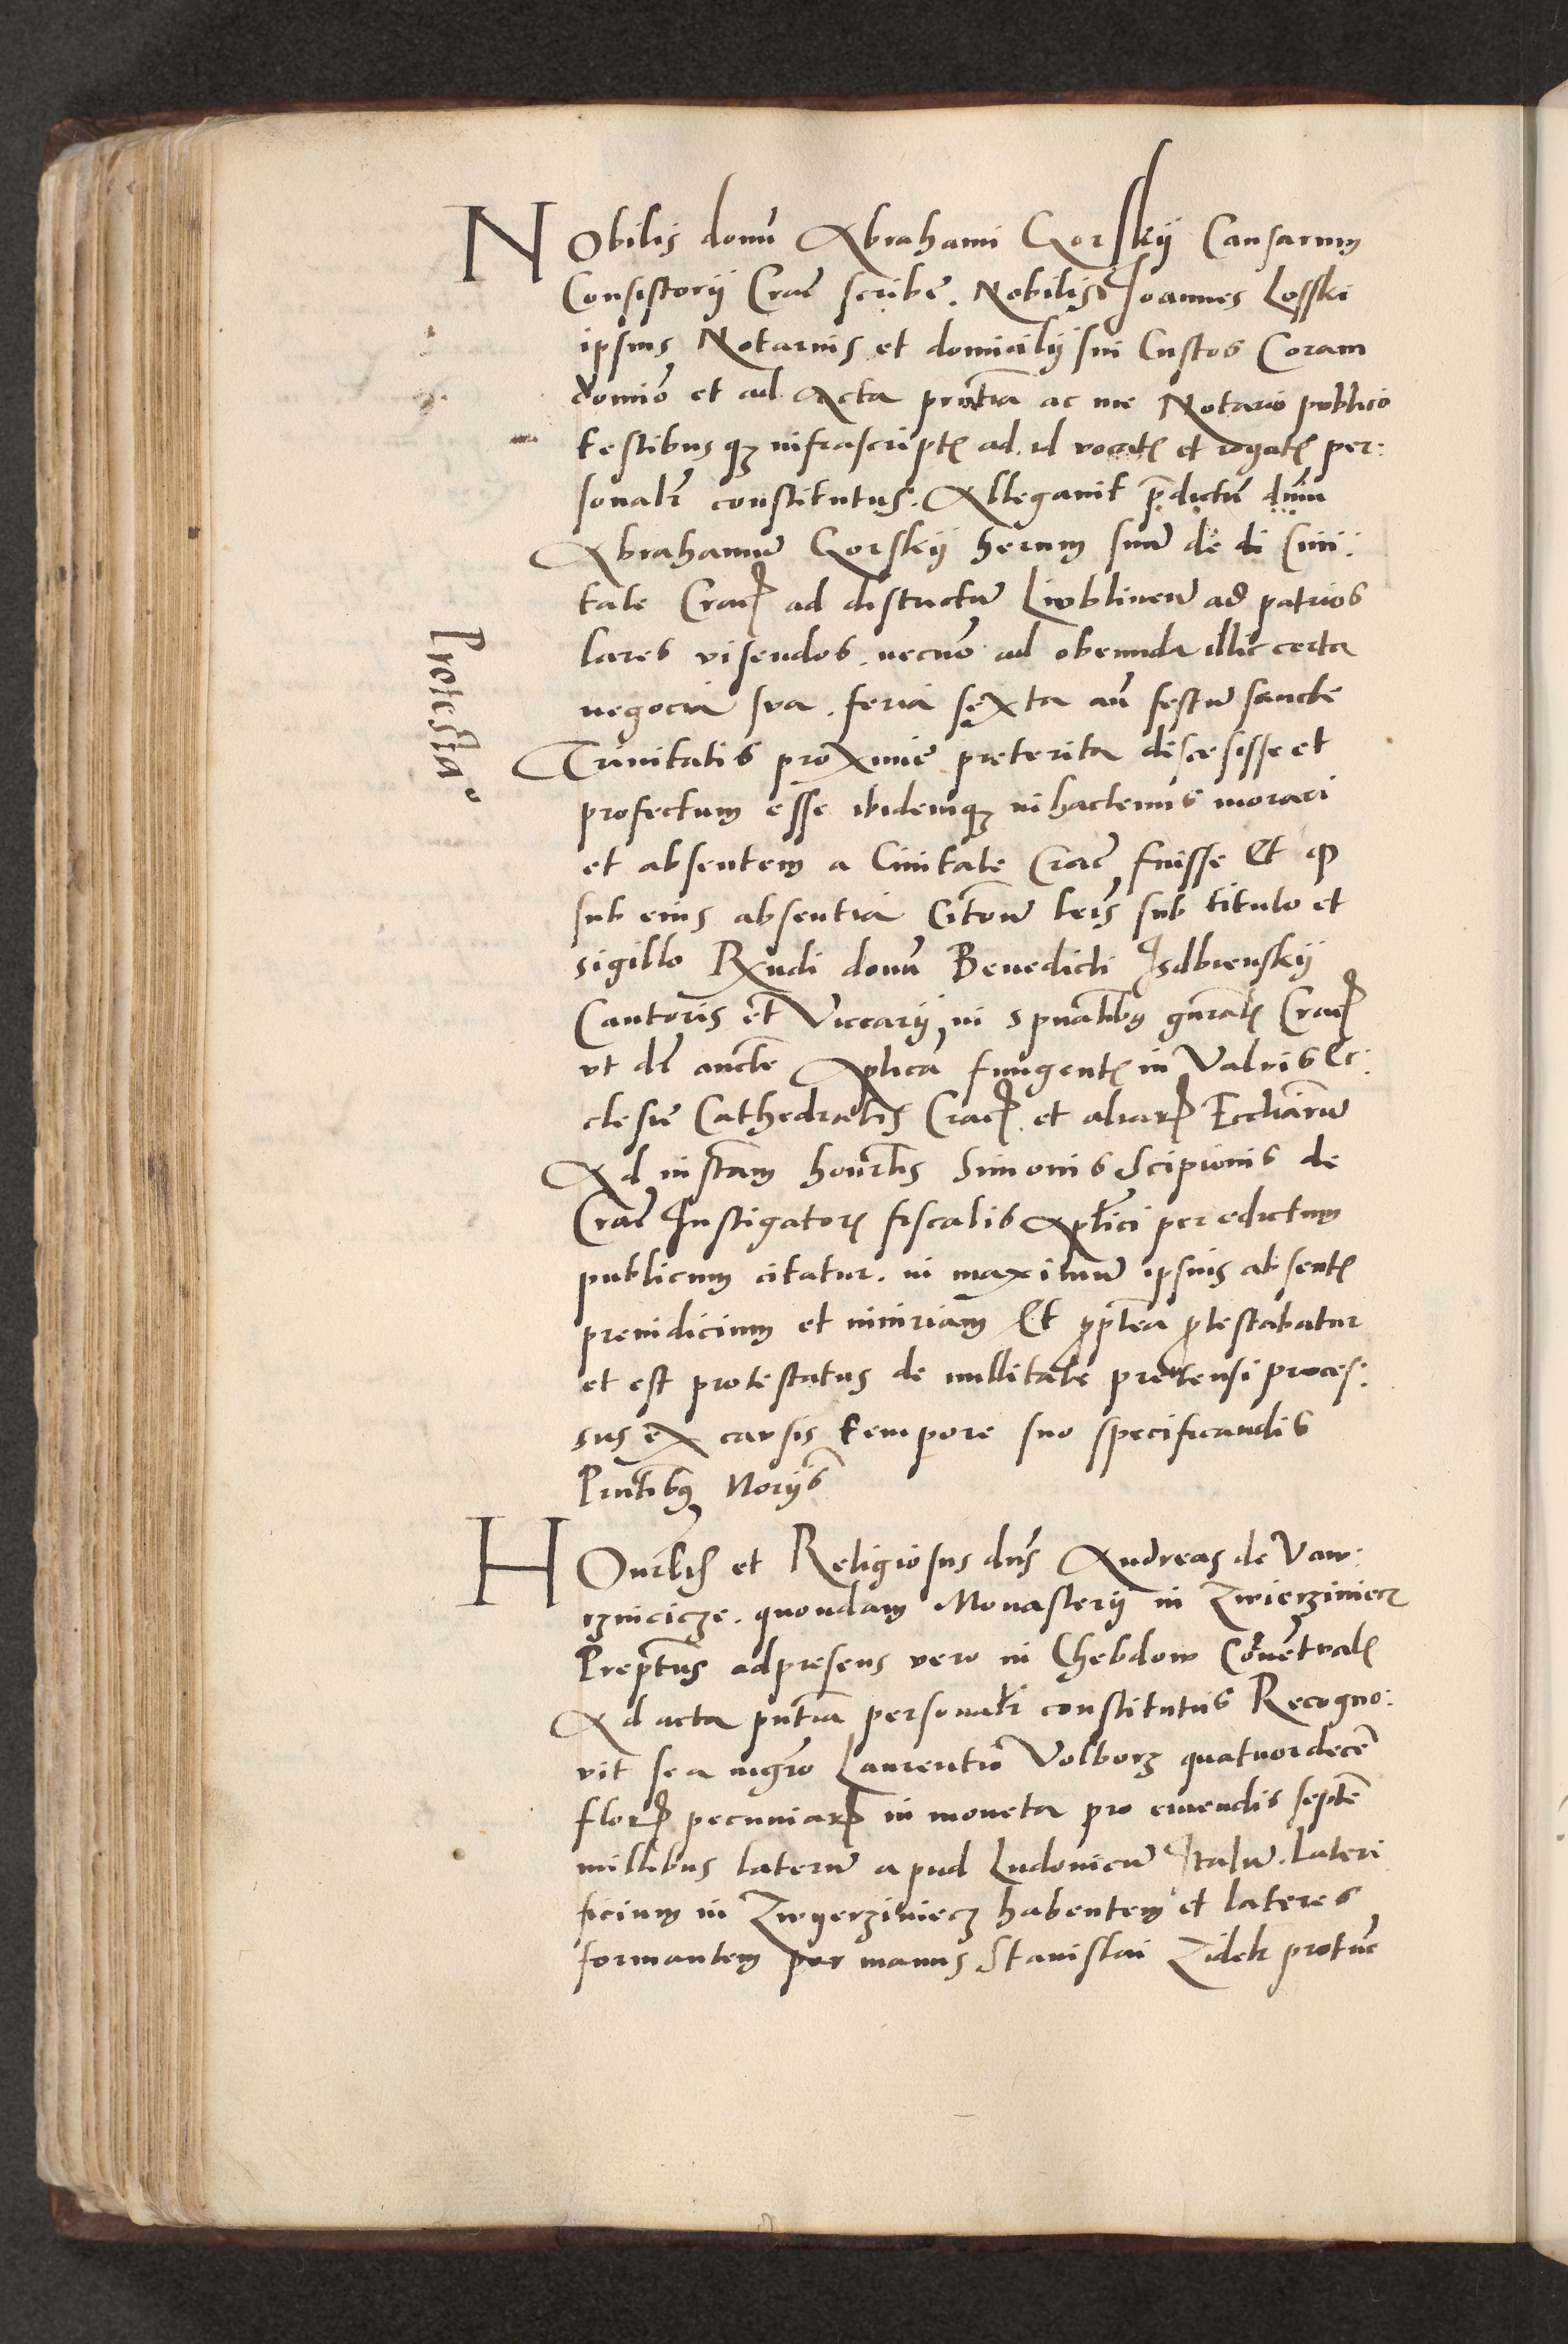 NObilis domĩ Abrahami Gorskij Causarum
Consistorij Crac̃ scribe. Nobilis Joannes Losski
ipsius Notarius et domicilij sui Custos Coram
domiõ et ad Acta pñtia ac me Notario publico
testibusqꝫ infrascriptꝭ ad id vocatꝭ et rogatꝭ per:
sonalr̃ constitutus. Allegavit p̃dictũ dnm̃
Abrahamũ Gorskij herum suũ de di Civi:
tate Crac̃ ad districtũ Lwblineñ ad patrios
lares visendos. necnõ ad obeunda illic certa
negocia sva. feria sexta añ festũ sancte
Trinitatis proxime preterita discesisse et
profectum esse ibidemqꝫ inhactenus morari
et absentem a Civitate Crac̃ fuisse Et ꝙ
sub eius absentia Citõnũ lr̃is sub titulo et
sigillo Rṽndi domĩ Benedicti Isdbienskij
Cantoris et Viccarij in spũalibꝰ gñralꝭ Crac̃
vt dr̃ aucte Aplica fungentꝭ in Valvis Ec:
clesie Cathedralis Crac̃ et aliarꝝ Eccliarũ
Ad instam̃ honorłis Simonis Scipionis de
Crac̃ Instigatorꝭ fiscalis Aplici per edictum
publicum citatur. in maximũ ipsius absentꝭ
preiudicium et iniuriam Et ꝓptea ꝓtestabatur
et est protestatus de nullitate pretensi proces:
sus ex cavsis tempore suo specificandis
Pñtibꝰ Norijs
Protestᵃᵒ
HOnorłis et Religiosus dñs Andreas de Vaw:
rznicicze. quondam Monasterij in Zwierziniecz
Prepltus adpresens vero in Chebdow Cõvẽtvalꝭ
Ad acta pñtia personalr̃ constitutus Recogno:
vit se a mgr̃o Laurentio Volborz quatuordecẽ
florꝝ pecuniarꝝ in moneta pro emendis septẽ
millibus laterũ apud Ludovicũ Italũ. Lateri
ficium in Zwyerziniecz habentem et lateres
formantem per manus Stanislai Zidek protũc